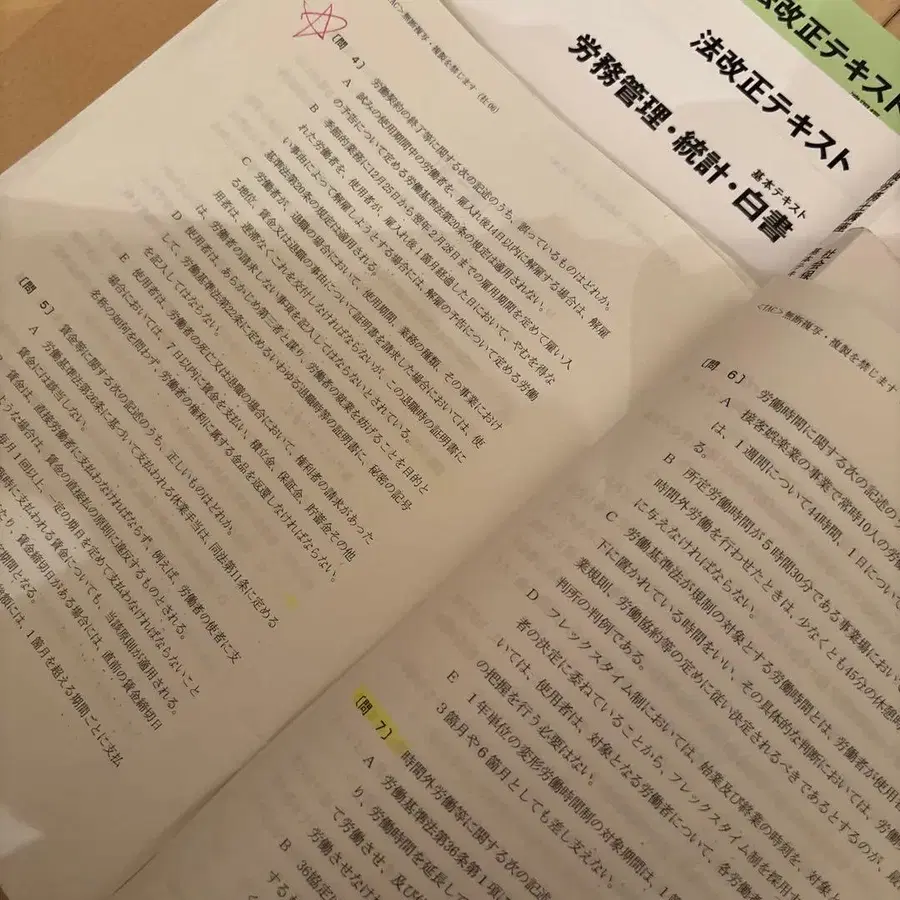 法改正テキスト
法改正テキスト
労務管理・統計・白書
基本テキスト
無断複写・複製を禁じます
〔問 4〕 労働契約の終了等に関する次の記述のうち、誤っているものはどれか。
A 試みの使用期間中の労働者を、雇入れ後14日以内に解雇する場合は、解雇
の予告について定める労働基準法第20条の規定は適用されない。
B 季節的業務に12月25日から翌年2月28日までの雇用期間を定めて雇い入
れた労働者を、使用者が、雇入れ後1箇月経過した日において、やむを得な
い事由によって解雇しようとする場合には、解雇の予告について定める労働
基準法第20条の規定は適用される。
C 労働者が、退職の場合において、使用期間、業務の種類、その事業におけ
る地位、賃金又は退職の事由について証明書を請求した場合においては、使
用者は、遅滞なくこれを交付しなければならないが、この退職時の証明書に
は、労働者の請求しない事項を記入してはならないとされている。
D 使用者は、あらかじめ第三者と謀り、労働者の就業を妨げることを目的と
して、労働基準法第22条に定めるいわゆる退職時等の証明書に、秘密の記号
を記入してはならない。
E 使用者は、労働者の死亡又は退職の場合において、権利者の請求があった
場合においては、7日以内に賃金を支払い、積立金、保証金、貯蓄金その他
名称の如何を問わず、労働者の権利に属する金品を返還しなければならない。
〔問 5〕 賃金等に関する次の記述のうち、正しいものはどれか。
A 労働基準法第26条に基づいて支払われる休業手当は、同法第11条に定める
賃金には該当しない。
賃金は、直接労働者に支払わなければならず、例えば、労働者の使者に支
ような場合は、賃金の直接払の原則に違反するものとされる。
毎月1回以上、一定の期日を定めて支払わなければならないこと
時に支払われる賃金についても、当該原則が適用される。
たり、賃金締切日がある場合には、直前の賃金締切日
定期間となる。
金額には、1箇月を超える期間ごとに支払
無断複写・複製を禁じます
〔問 6〕 労働時間に関する次の記述のう
A 接客娯楽業の事業で常時10人の労
は、1週間について44時間、1日につい
る。
B 所定労働時間が5時間30分である事業場におい
時間外労働を行わせたときは、少なくとも45分の休憩時
に与えなければならない。
C 労働基準法が規制の対象とする労働時間とは、労働者が使用者
下に置かれている時間をいい、その具体的な判断においては、労働
業規則、労働協約等の定めに従い決定されるべきであるとするのが、最
判所の判例である。
D フレックスタイム制においては、始業及び終業の時刻を、対象と
者の決定に委ねていることから、フレックスタイム制を採用す
いては、使用者は、対象となる労働者について、各労働
の把握を行う必要はない。
E 1年単位の変形労働時間制の対象期間は、1
3箇月や6箇月としても差し支えない。
〔問 7〕 時間外労働等に関する次の記述
A 労働基準法第36条第1項に
り、労働時間を延長して
て労働させ、及び
労働させなけ
B 36協定
する